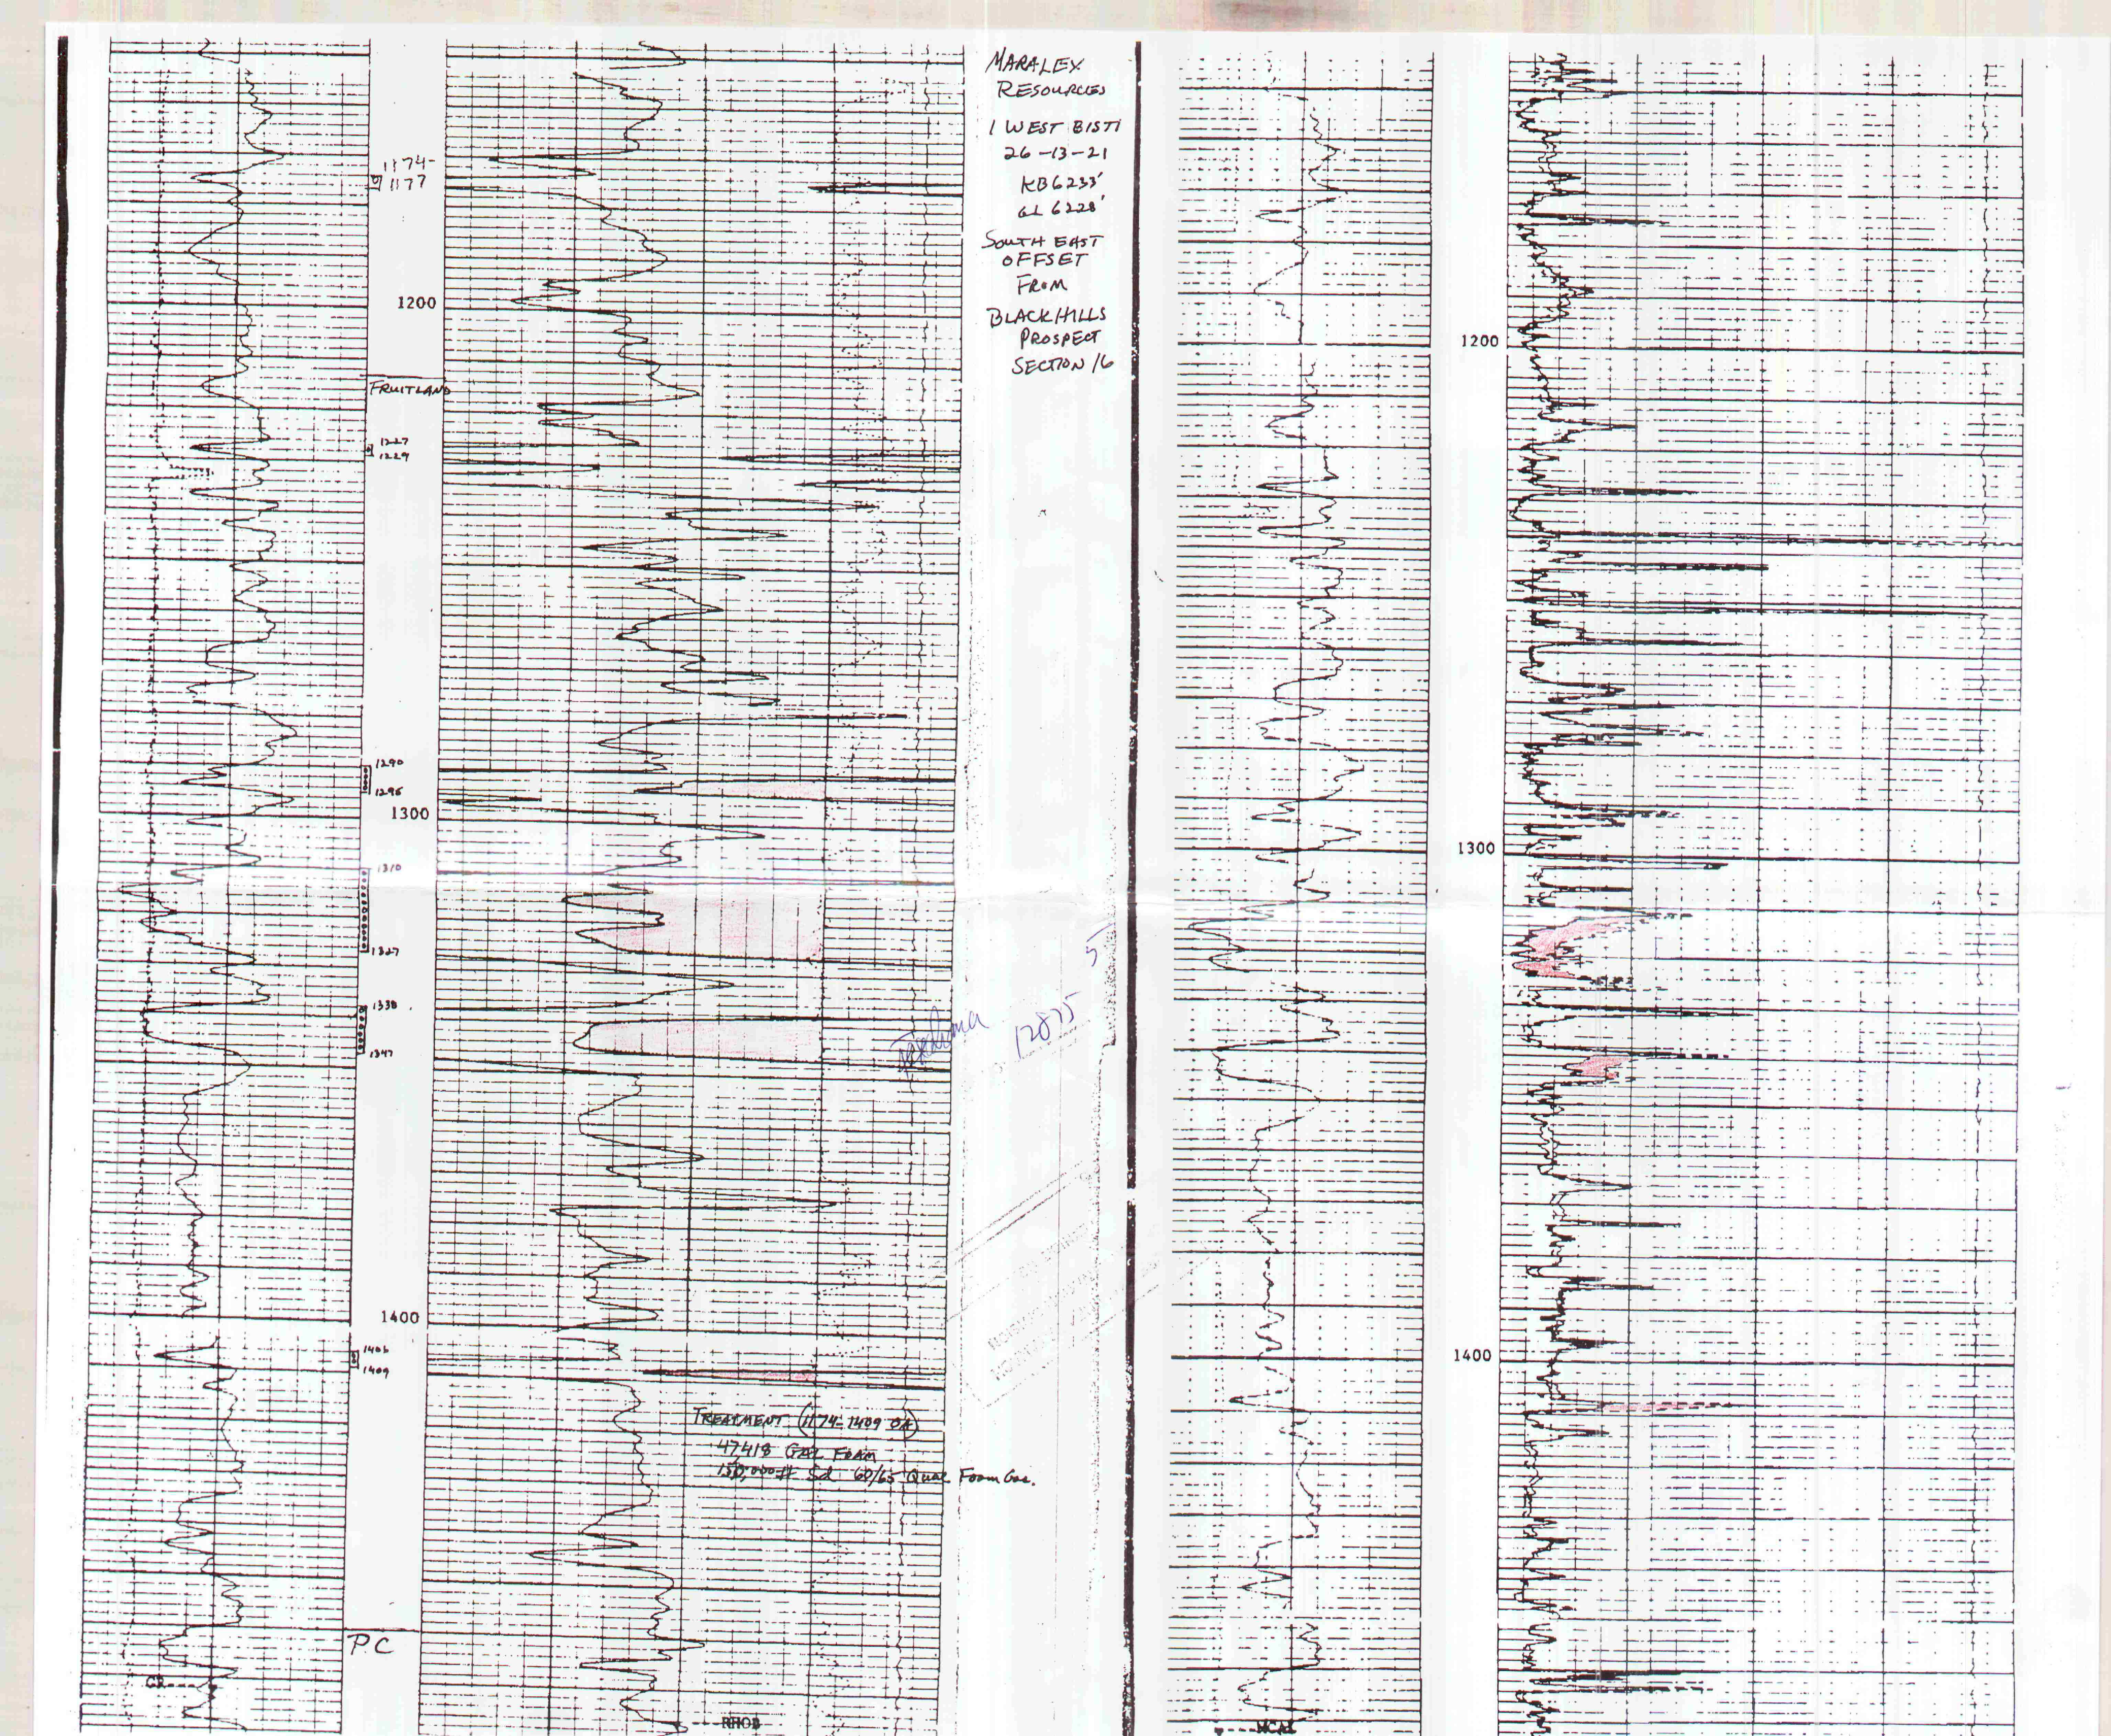 MARALEX
RESOURCES
1 WEST BISTI
26-13-21
KB6233'
GL 6228'
SOUTH EAST
OFFSET
FROM
BLACKHILLS
PROSPECT
SECTION 16
1174-
1177
1200
FRUITLAND
1227
1229
1290
1296
1300
1310
1327
1338
1347
1400
1406
1409
TREATMENT (1174-1409 OA)
47418 GAL FOAM
150,000# Sd 60/65 Qual Foam Gas.
PC
GR
RHOB
5
12875
1200
1300
1400
MCAL